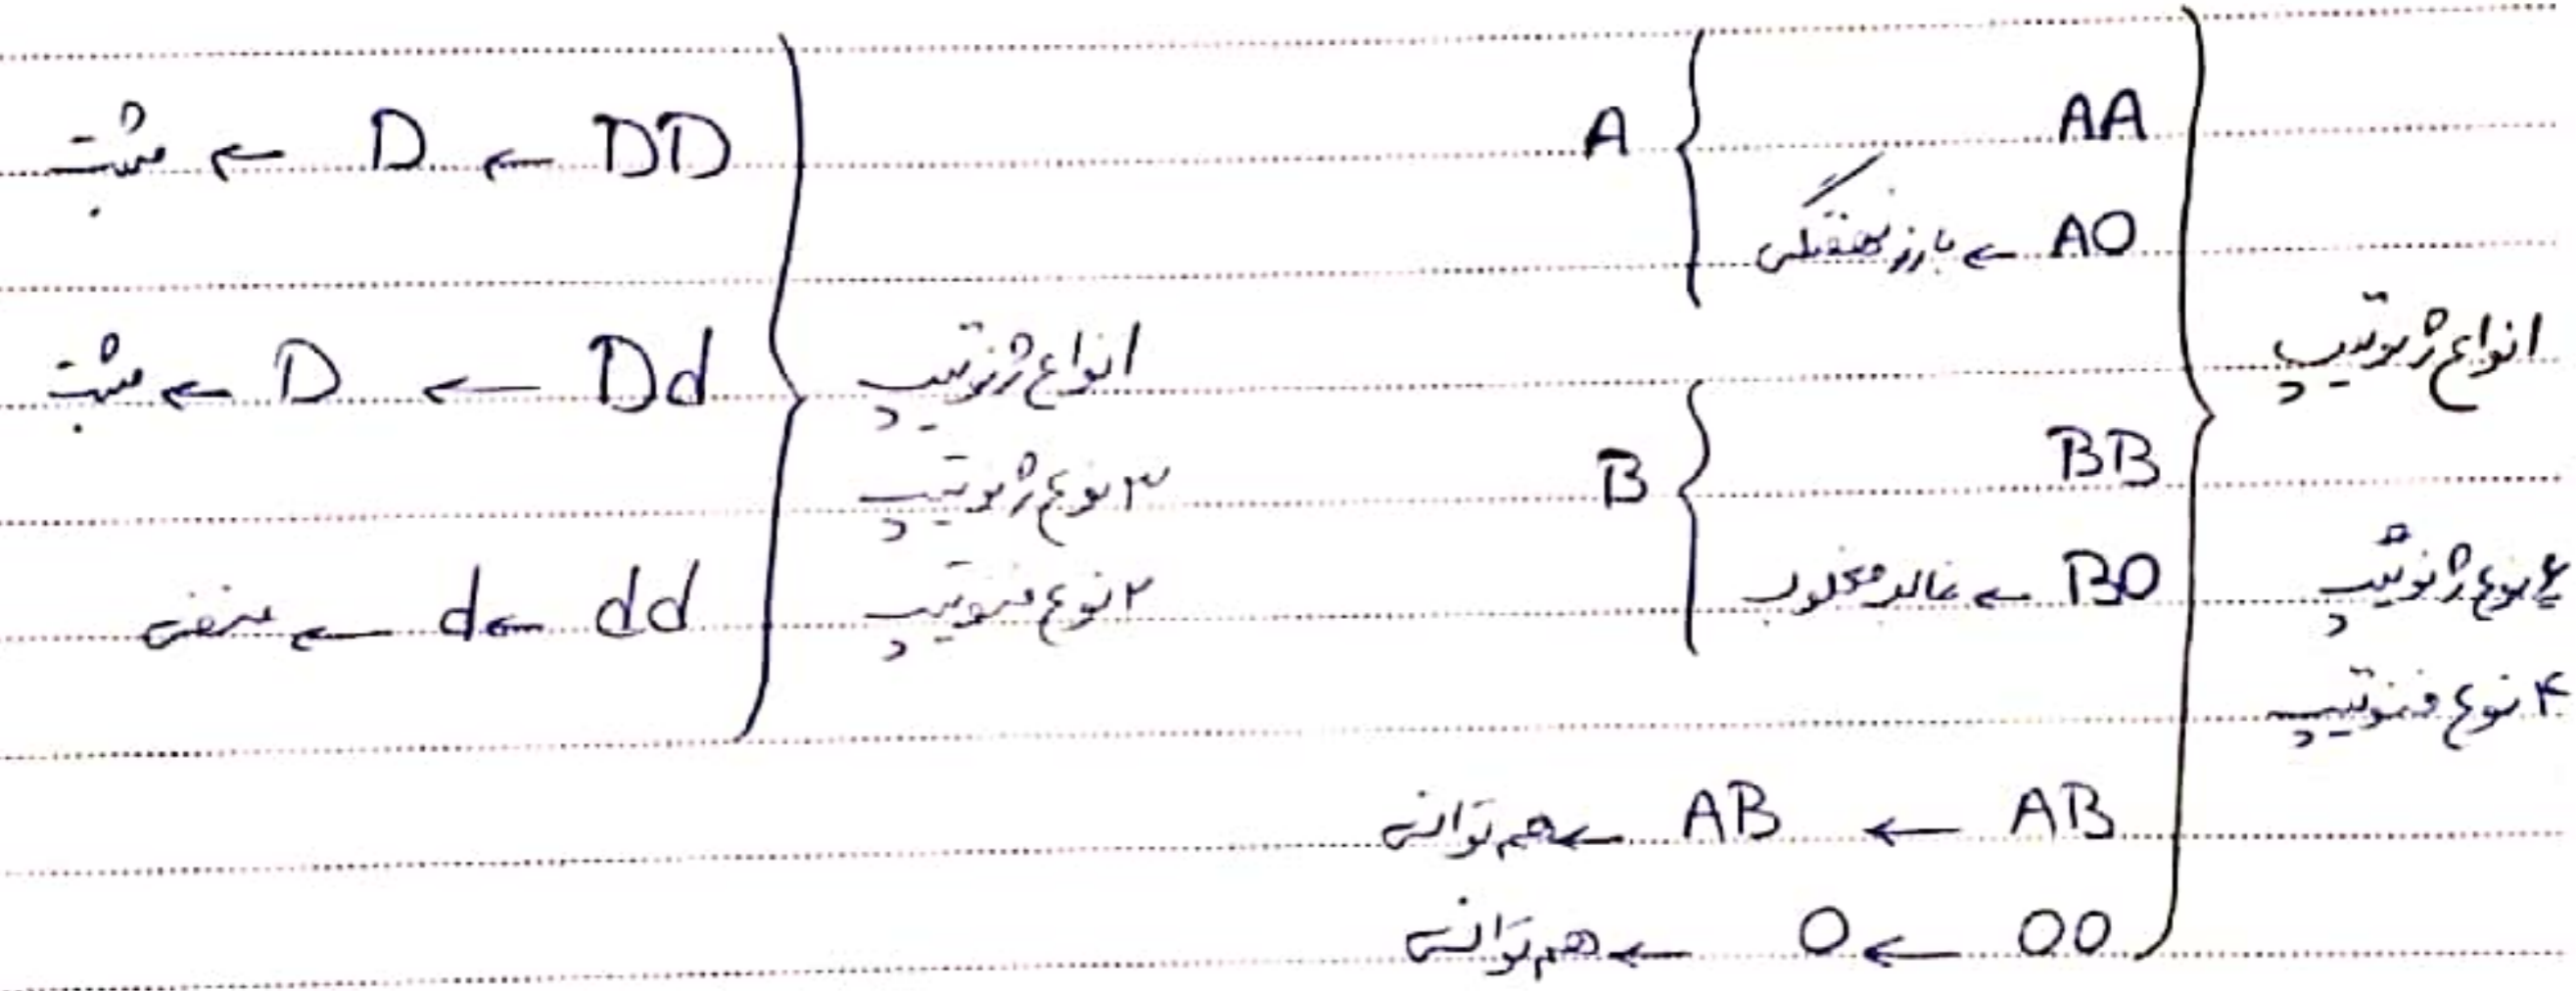 انواع ژنوتیپ
۶ نوع ژنوتیپ
۴ نوع فنوتیپ
AA
AO ← بارز نهفتگی
A
BB
BO ← غالب مغلوب
B
AB ← AB ← هم توانی
OO ← O ← هم توانی
انواع ژنوتیپ
۳ نوع ژنوتیپ
۲ نوع فنوتیپ
DD ← D ← مثبت
Dd ← D ← مثبت
dd ← d ← منفی